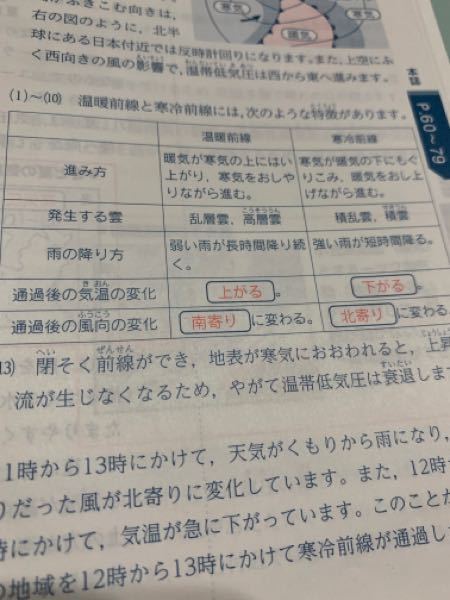 寒気
がふきこむ向きは、
右の図のように，北半
暖気
球にある日本付近では反時計回りになります。また，上空にふ
く西向きの風の影響で，温帯低気圧は西から東へ進みます。
本誌
P.60~79
(1)~(10) 温暖前線と寒冷前線には，次のような特徴があります。
温暖前線 寒冷前線
進み方
暖気が寒気の上にはい
上がり，寒気をおしや
りながら進む。
寒気が暖気の下にもぐ
りこみ，暖気をおし上
げながら進む。
発生する雲 乱層雲，高層雲 積乱雲，積雲
雨の降り方
弱い雨が長時間降り続
く。
強い雨が短時間降る。
通過後の気温の変化 上がる。 下がる。
通過後の風向の変化 南寄りに変わる。 北寄りに変わる。
13) 閉そく前線ができ，地表が寒気におおわれると，上昇
流が生じなくなるため，やがて温帯低気圧は衰退しま
11時から13時にかけて，天気がくもりから雨になり，
りだった風が北寄りに変化しています。また，12時
時にかけて，気温が急に下がっています。このことか
の地域を12時から13時にかけて寒冷前線が通過し